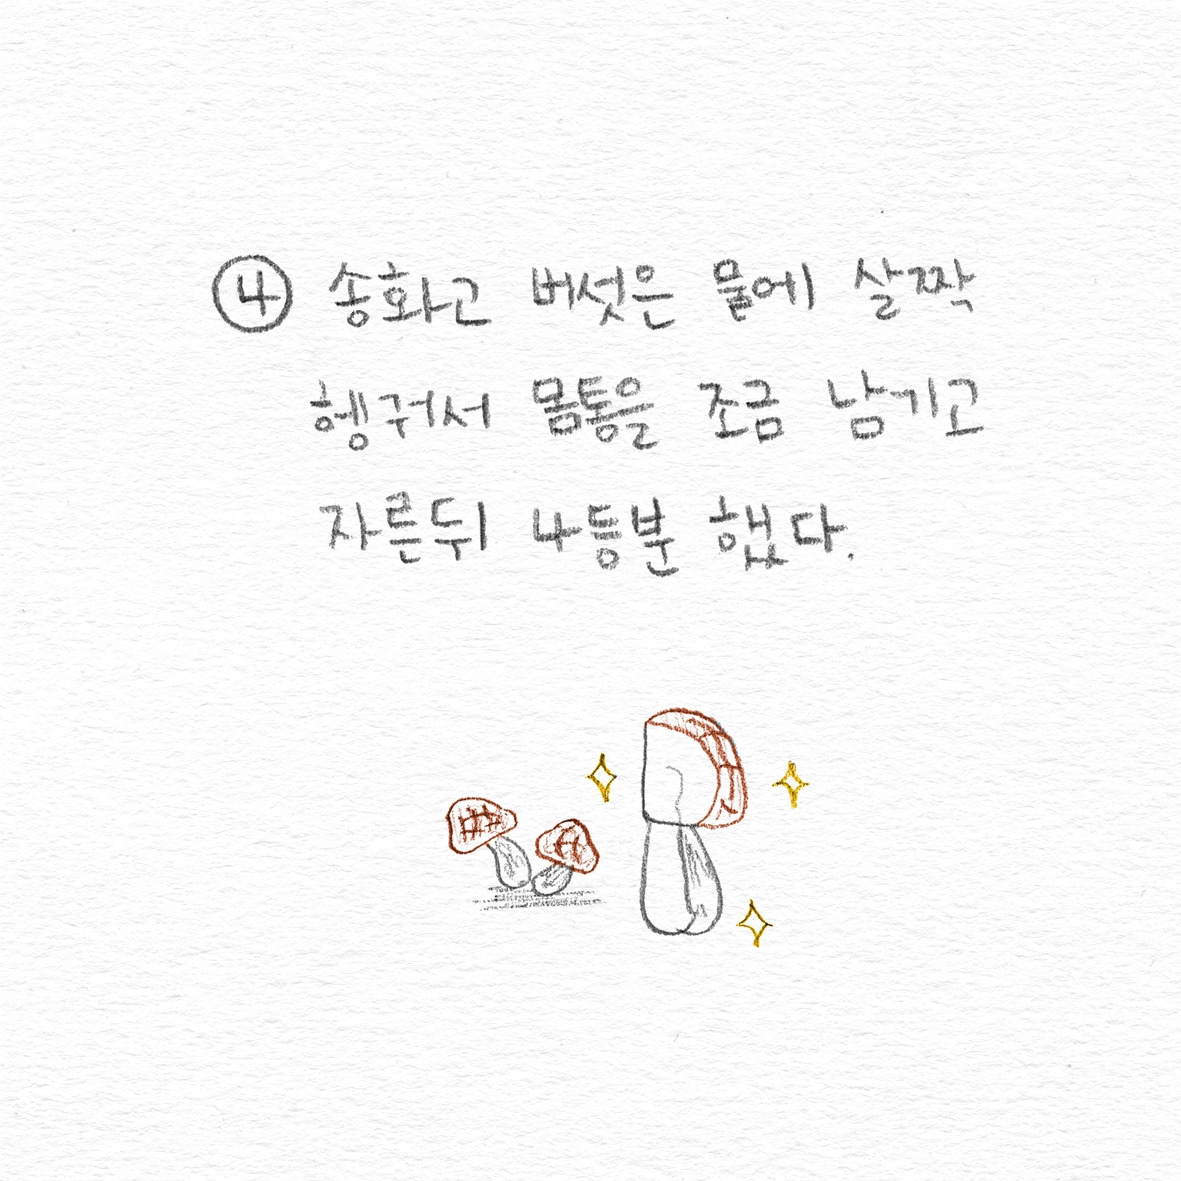 ④ 송화고 버섯은 물에 살짝
헹궈서 몸통을 조금 남기고
자른뒤 4등분 했다.